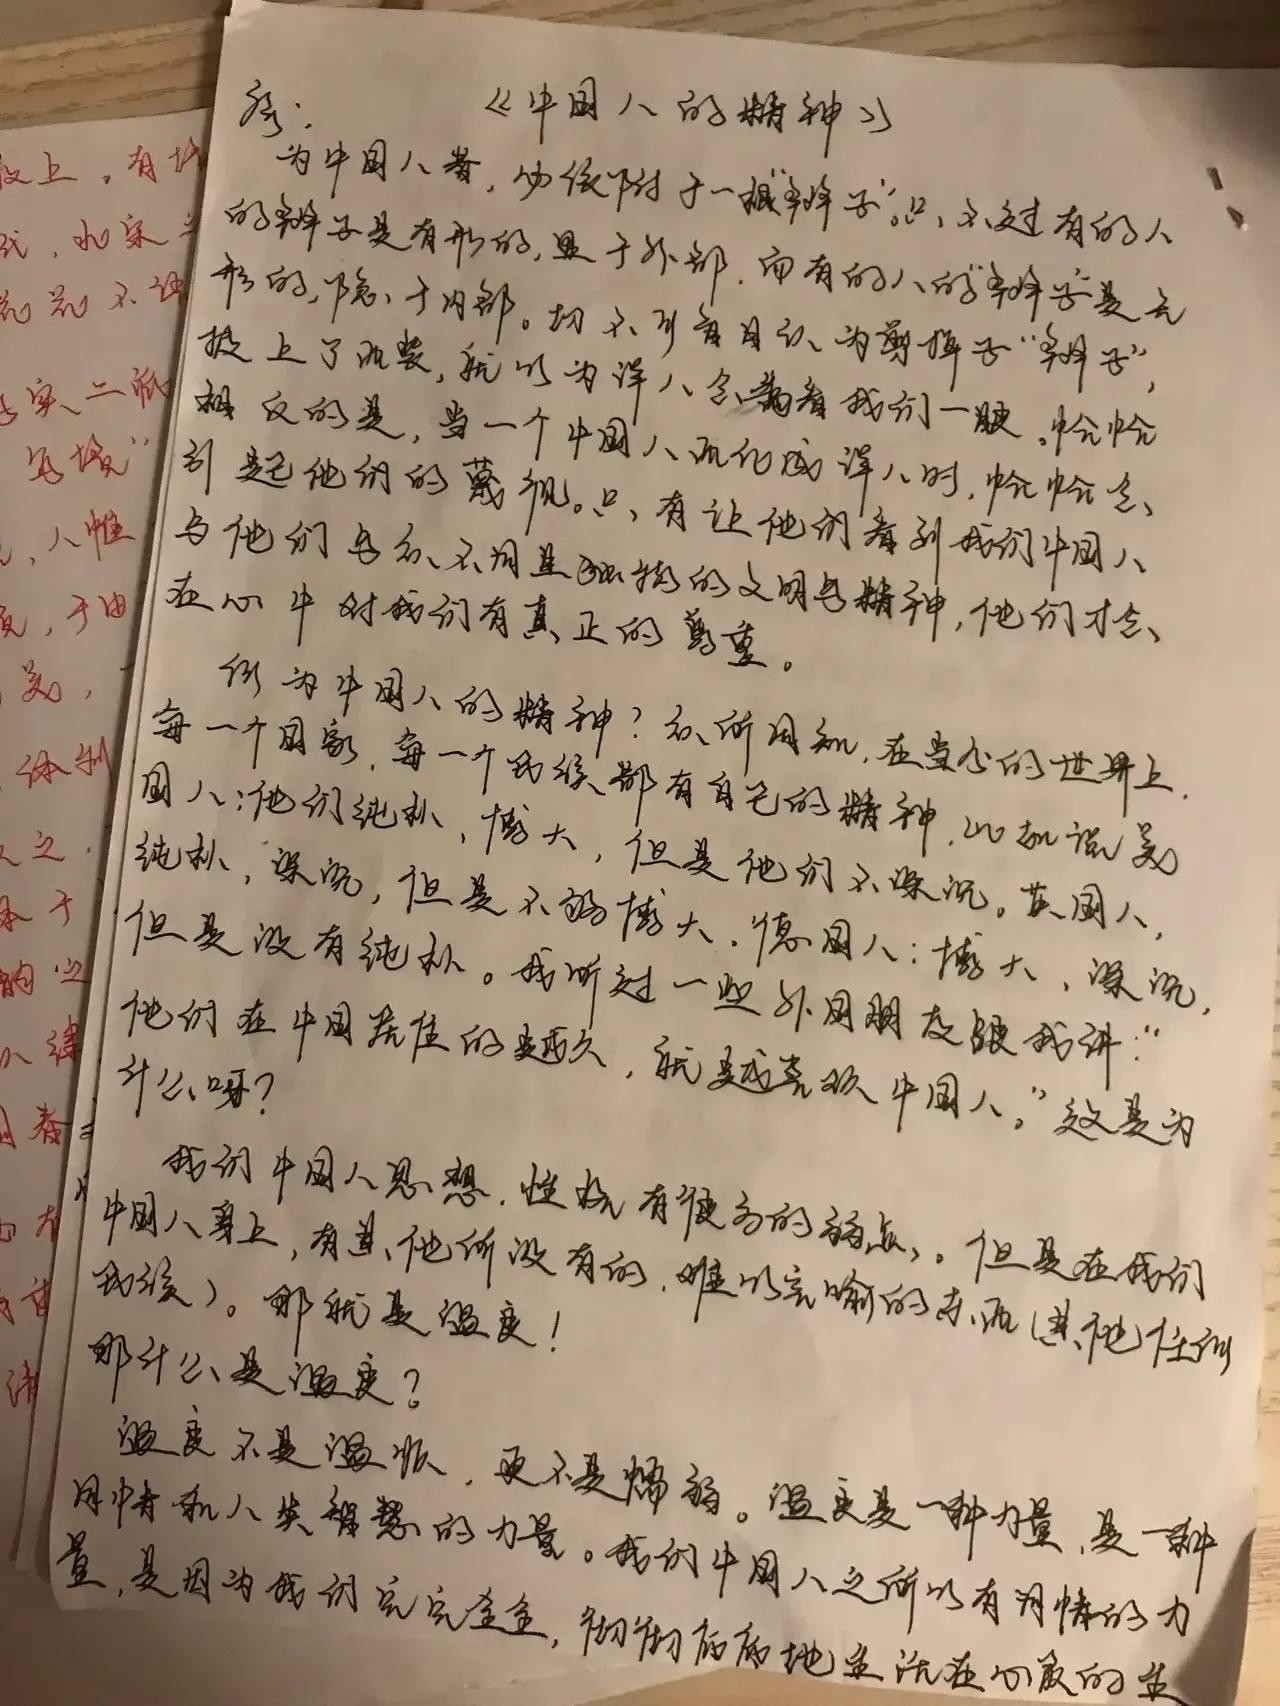 《中国人的精神》
为中国人者，仍依附于一根"辫子"。只不过有的人
的辫子是有形的，显于外部，而有的人的"辫子"是无
形的，隐于内部。切不可盲目认为剪掉了"辫子"，
披上了西装，就以为洋人会高看我们一眼。恰恰
相反的是，当一个中国人西化成洋人时，恰恰会
引起他们的蔑视。只有让他们看到我们中国人
与他们与众不同且独特的文明与精神，他们才会
在心中对我们有真正的尊重。
何为中国人的精神？众所周知，在当今的世界上
每一个国家，每一个民族都有自己的精神，比如说美
国人：他们纯朴，博大，但是他们不深沉。英国人，
纯朴，深沉，但是不够博大。德国人：博大，深沉，
但是没有纯朴。我听过一些外国朋友跟我讲："
他们在中国居住的越久，就越喜欢中国人。"这是为
什么呀？
我们中国人思想，性格有很多的弱点。但是在我们
中国人身上，有其他所没有的，难以言喻的东西（其他任何
民族）。那就是温良！
那什么是温良？
温良不是温顺，更不是懦弱。温良是一种力量，是一种
同情和人类智慧的力量。我们中国人之所以有同情的力
量，是因为我们完完全全，彻彻底底地生活在心灵的生